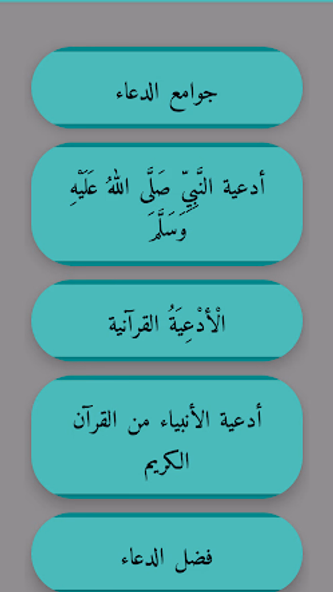 جوامع الدعاء
أدعية النَّبِيِّ صَلَّى اللهُ عَلَيْهِ
وَسَلَّمَ
الْأَدْعِيَةُ القرآنية
أدعية الأنبياء من القرآن
الكريم
فضل الدعاء